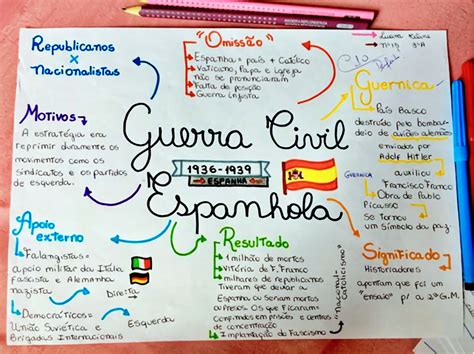 Republicanos
x
Nacionalistas
Motivos
A estratégia era
reprimir duramente os
movimentos como os
sindicatos e os partidos
de esquerda.
Apoio
externo
Falangistas=
apoio militar da Itália
fascista e Alemanha
nazista
Direita
Democráticos=
União Soviética e
Brigadas Internacionais
Esquerda
"Omissão"
Espanha= país + católico
Vaticano, Papa e igreja
não se pronunciaram
Falta de posição
Guerra injusta
Guerra Civil
1936-1939
ESPANHA
Espanhola
Resultado
1 milhão de mortos
Vitória de F. Franco
milhares de republicanos
Tiveram que deixar a
Espanha ou seriam mortos
ou presos. Os que ficaram=
em prisões e centros
de concentração
Implantação do Fascismo
"Nacional-
Catolicismo"
Nº15 3ºA
Guernica
País Basco
destruído pelo bombar-
deio de aviões alemães
enviados por
Adolf Hitler
auxiliou
Francisco Franco
GUERNICA
Obra de Pablo
Picasso
Se tornou
um símbolo da paz
Significado
Historiadores
apontam que foi um
"ensaio" p/ a 2ªG.M.